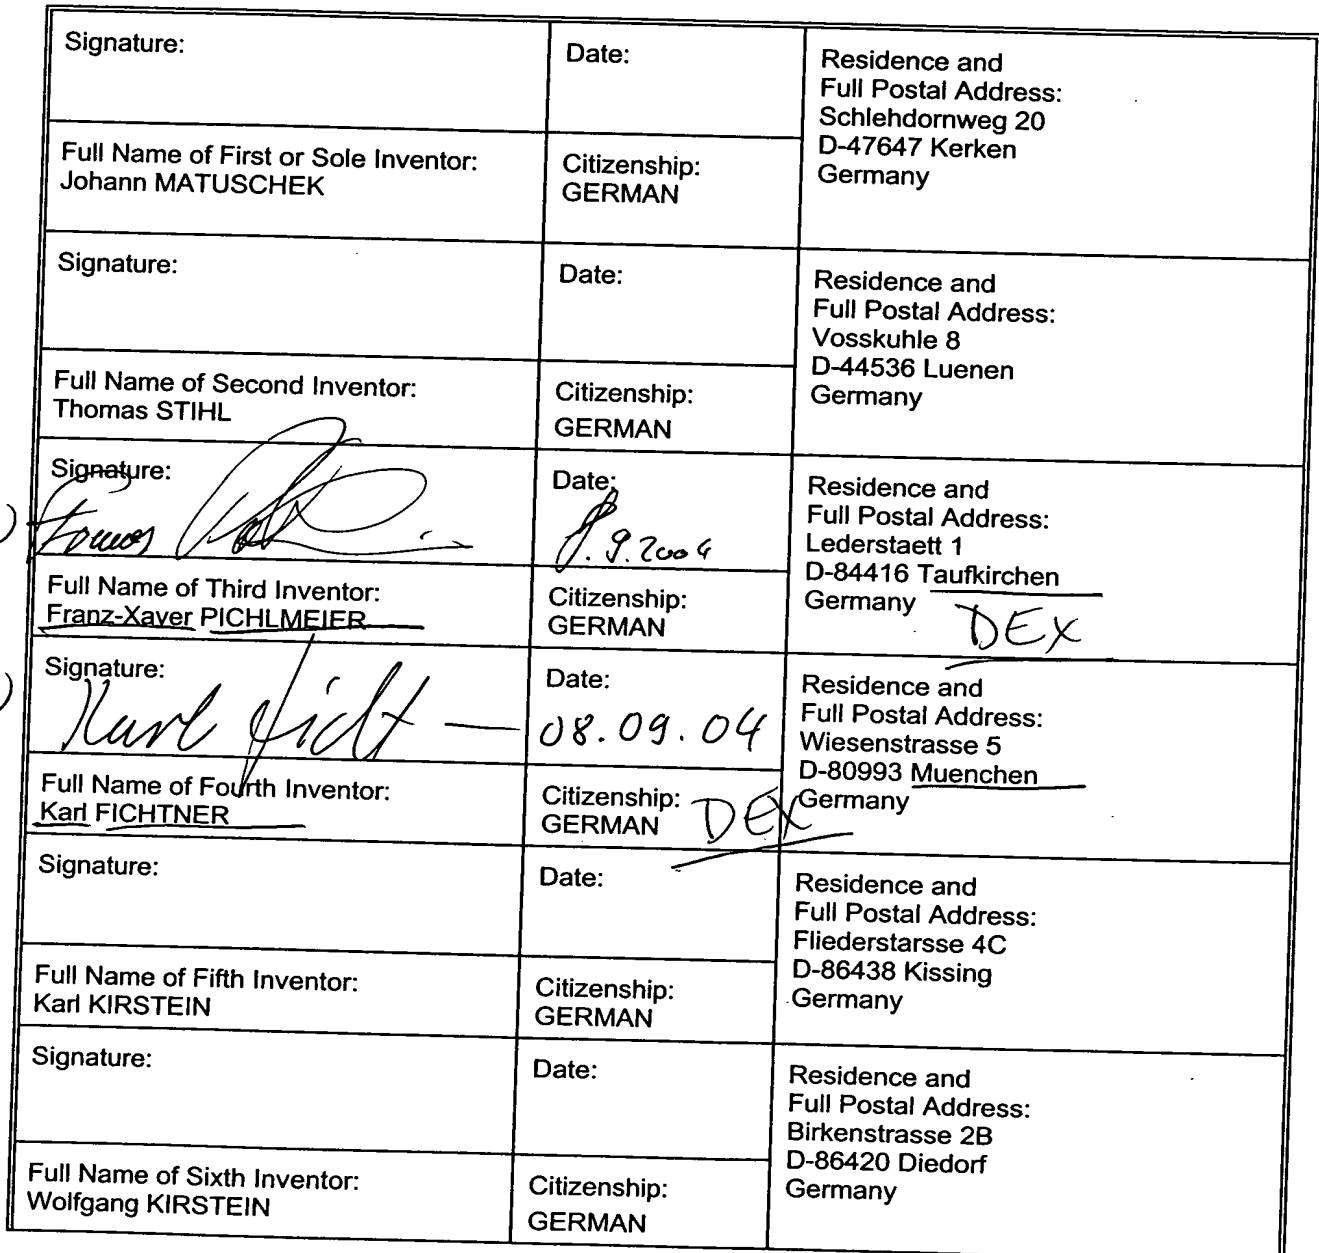 Signature:
Date:
Residence and
Full Postal Address:
Schlehdornweg 20
D-47647 Kerken
Germany
Full Name of First or Sole Inventor:
Johann MATUSCHEK
Citizenship:
GERMAN
Signature:
Date:
Residence and
Full Postal Address:
Vosskuhle 8
D-44536 Luenen
Germany
Full Name of Second Inventor:
Thomas STIHL
Citizenship:
GERMAN
Signature:
Date:
8.9.2004
Residence and
Full Postal Address:
Lederstaett 1
D-84416 Taufkirchen
Germany
DEX
Full Name of Third Inventor:
Franz-Xaver PICHLMEIER
Citizenship:
GERMAN
Signature:
Karl
Date:
08.09.04
Residence and
Full Postal Address:
Wiesenstrasse 5
D-80993 Muenchen
Germany
Full Name of Fourth Inventor:
Karl FICHTNER
Citizenship:
GERMAN
DEX
Signature:
Date:
Residence and
Full Postal Address:
Fliederstarsse 4C
D-86438 Kissing
Germany
Full Name of Fifth Inventor:
Karl KIRSTEIN
Citizenship:
GERMAN
Signature:
Date:
Residence and
Full Postal Address:
Birkenstrasse 2B
D-86420 Diedorf
Germany
Full Name of Sixth Inventor:
Wolfgang KIRSTEIN
Citizenship:
GERMAN